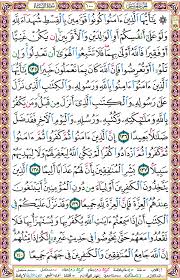 يَٰٓأَيُّهَا ٱلَّذِينَ ءَامَنُوا۟ كُونُوا۟ قَوَّٰمِينَ بِٱلْقِسْطِ شُهَدَآءَ لِلَّهِ
وَلَوْ عَلَىٰٓ أَنفُسِكُمْ أَوِ ٱلْوَٰلِدَيْنِ وَٱلْأَقْرَبِينَ إِن يَكُنْ غَنِيًّا
أَوْ فَقِيرًا فَٱللَّهُ أَوْلَىٰ بِهِمَا فَلَا تَتَّبِعُوا۟ ٱلْهَوَىٰٓ أَن تَعْدِلُوا۟ وَإِن
تَلْوُۥٓا۟ أَوْ تُعْرِضُوا۟ فَإِنَّ ٱللَّهَ كَانَ بِمَا تَعْمَلُونَ خَبِيرًا ١٣٥ يَٰٓأَيُّهَا
ٱلَّذِينَ ءَامَنُوٓا۟ ءَامِنُوا۟ بِٱللَّهِ وَرَسُولِهِۦ وَٱلْكِتَٰبِ ٱلَّذِى نَزَّلَ
عَلَىٰ رَسُولِهِۦ وَٱلْكِتَٰبِ ٱلَّذِىٓ أَنزَلَ مِن قَبْلُ وَمَن يَكْفُرْ
بِٱللَّهِ وَمَلَٰٓئِكَتِهِۦ وَكُتُبِهِۦ وَرُسُلِهِۦ وَٱلْيَوْمِ ٱلْءَاخِرِ فَقَدْ ضَلَّ
ضَلَٰلًۢا بَعِيدًا ١٣٦ إِنَّ ٱلَّذِينَ ءَامَنُوا۟ ثُمَّ كَفَرُوا۟ ثُمَّ ءَامَنُوا۟
ثُمَّ كَفَرُوا۟ ثُمَّ ٱزْدَادُوا۟ كُفْرًا لَّمْ يَكُنِ ٱللَّهُ لِيَغْفِرَ لَهُمْ وَلَا
لِيَهْدِيَهُمْ سَبِيلًۢا ١٣٧ بَشِّرِ ٱلْمُنَٰفِقِينَ بِأَنَّ لَهُمْ عَذَابًا أَلِيمًا ١٣٨
ٱلَّذِينَ يَتَّخِذُونَ ٱلْكَٰفِرِينَ أَوْلِيَآءَ مِن دُونِ ٱلْمُؤْمِنِينَ أَيَبْتَغُونَ
عِندَهُمُ ٱلْعِزَّةَ فَإِنَّ ٱلْعِزَّةَ لِلَّهِ جَمِيعًا ١٣٩ وَقَدْ نَزَّلَ عَلَيْكُمْ فِى
ٱلْكِتَٰبِ أَنْ إِذَا سَمِعْتُمْ ءَايَٰتِ ٱللَّهِ يُكْفَرُ بِهَا وَيُسْتَهْزَأُ بِهَا فَلَا
تَقْعُدُوا۟ مَعَهُمْ حَتَّىٰ يَخُوضُوا۟ فِى حَدِيثٍ غَيْرِهِۦٓ إِنَّكُمْ إِذًا مِّثْلُهُمْ
إِنَّ ٱللَّهَ جَامِعُ ٱلْمُنَٰفِقِينَ وَٱلْكَٰفِرِينَ فِى جَهَنَّمَ جَمِيعًا ١٤٠